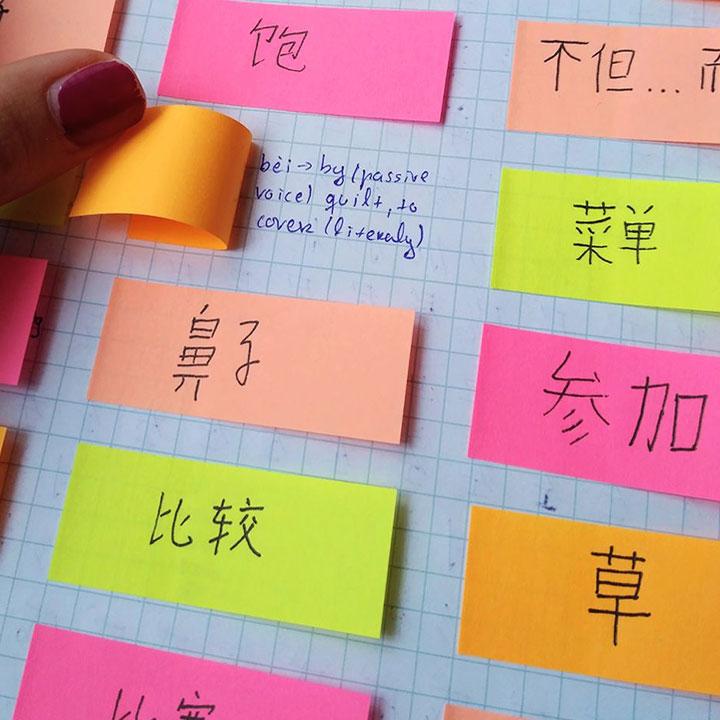 饱
不但...而
bèi → by (passive
voice) quilt, to
cover (literaly)
菜单
鼻子
参加
比较
草
比赛